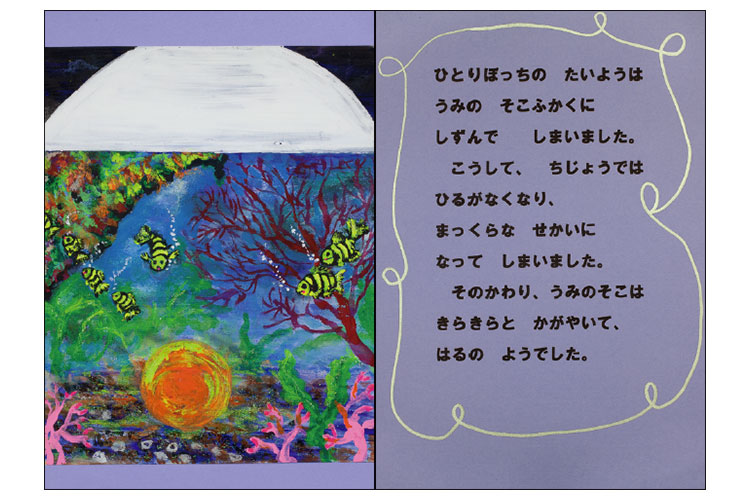 ひとりぼっちの　たいようは
うみの　そこふかくに
しずんで　　しまいました。
　こうして、　ちじょうでは
ひるがなくなり、
まっくらな　せかいに
なって　しまいました。
　そのかわり、うみのそこは
きらきらと　かがやいて、
はるの　ようでした。